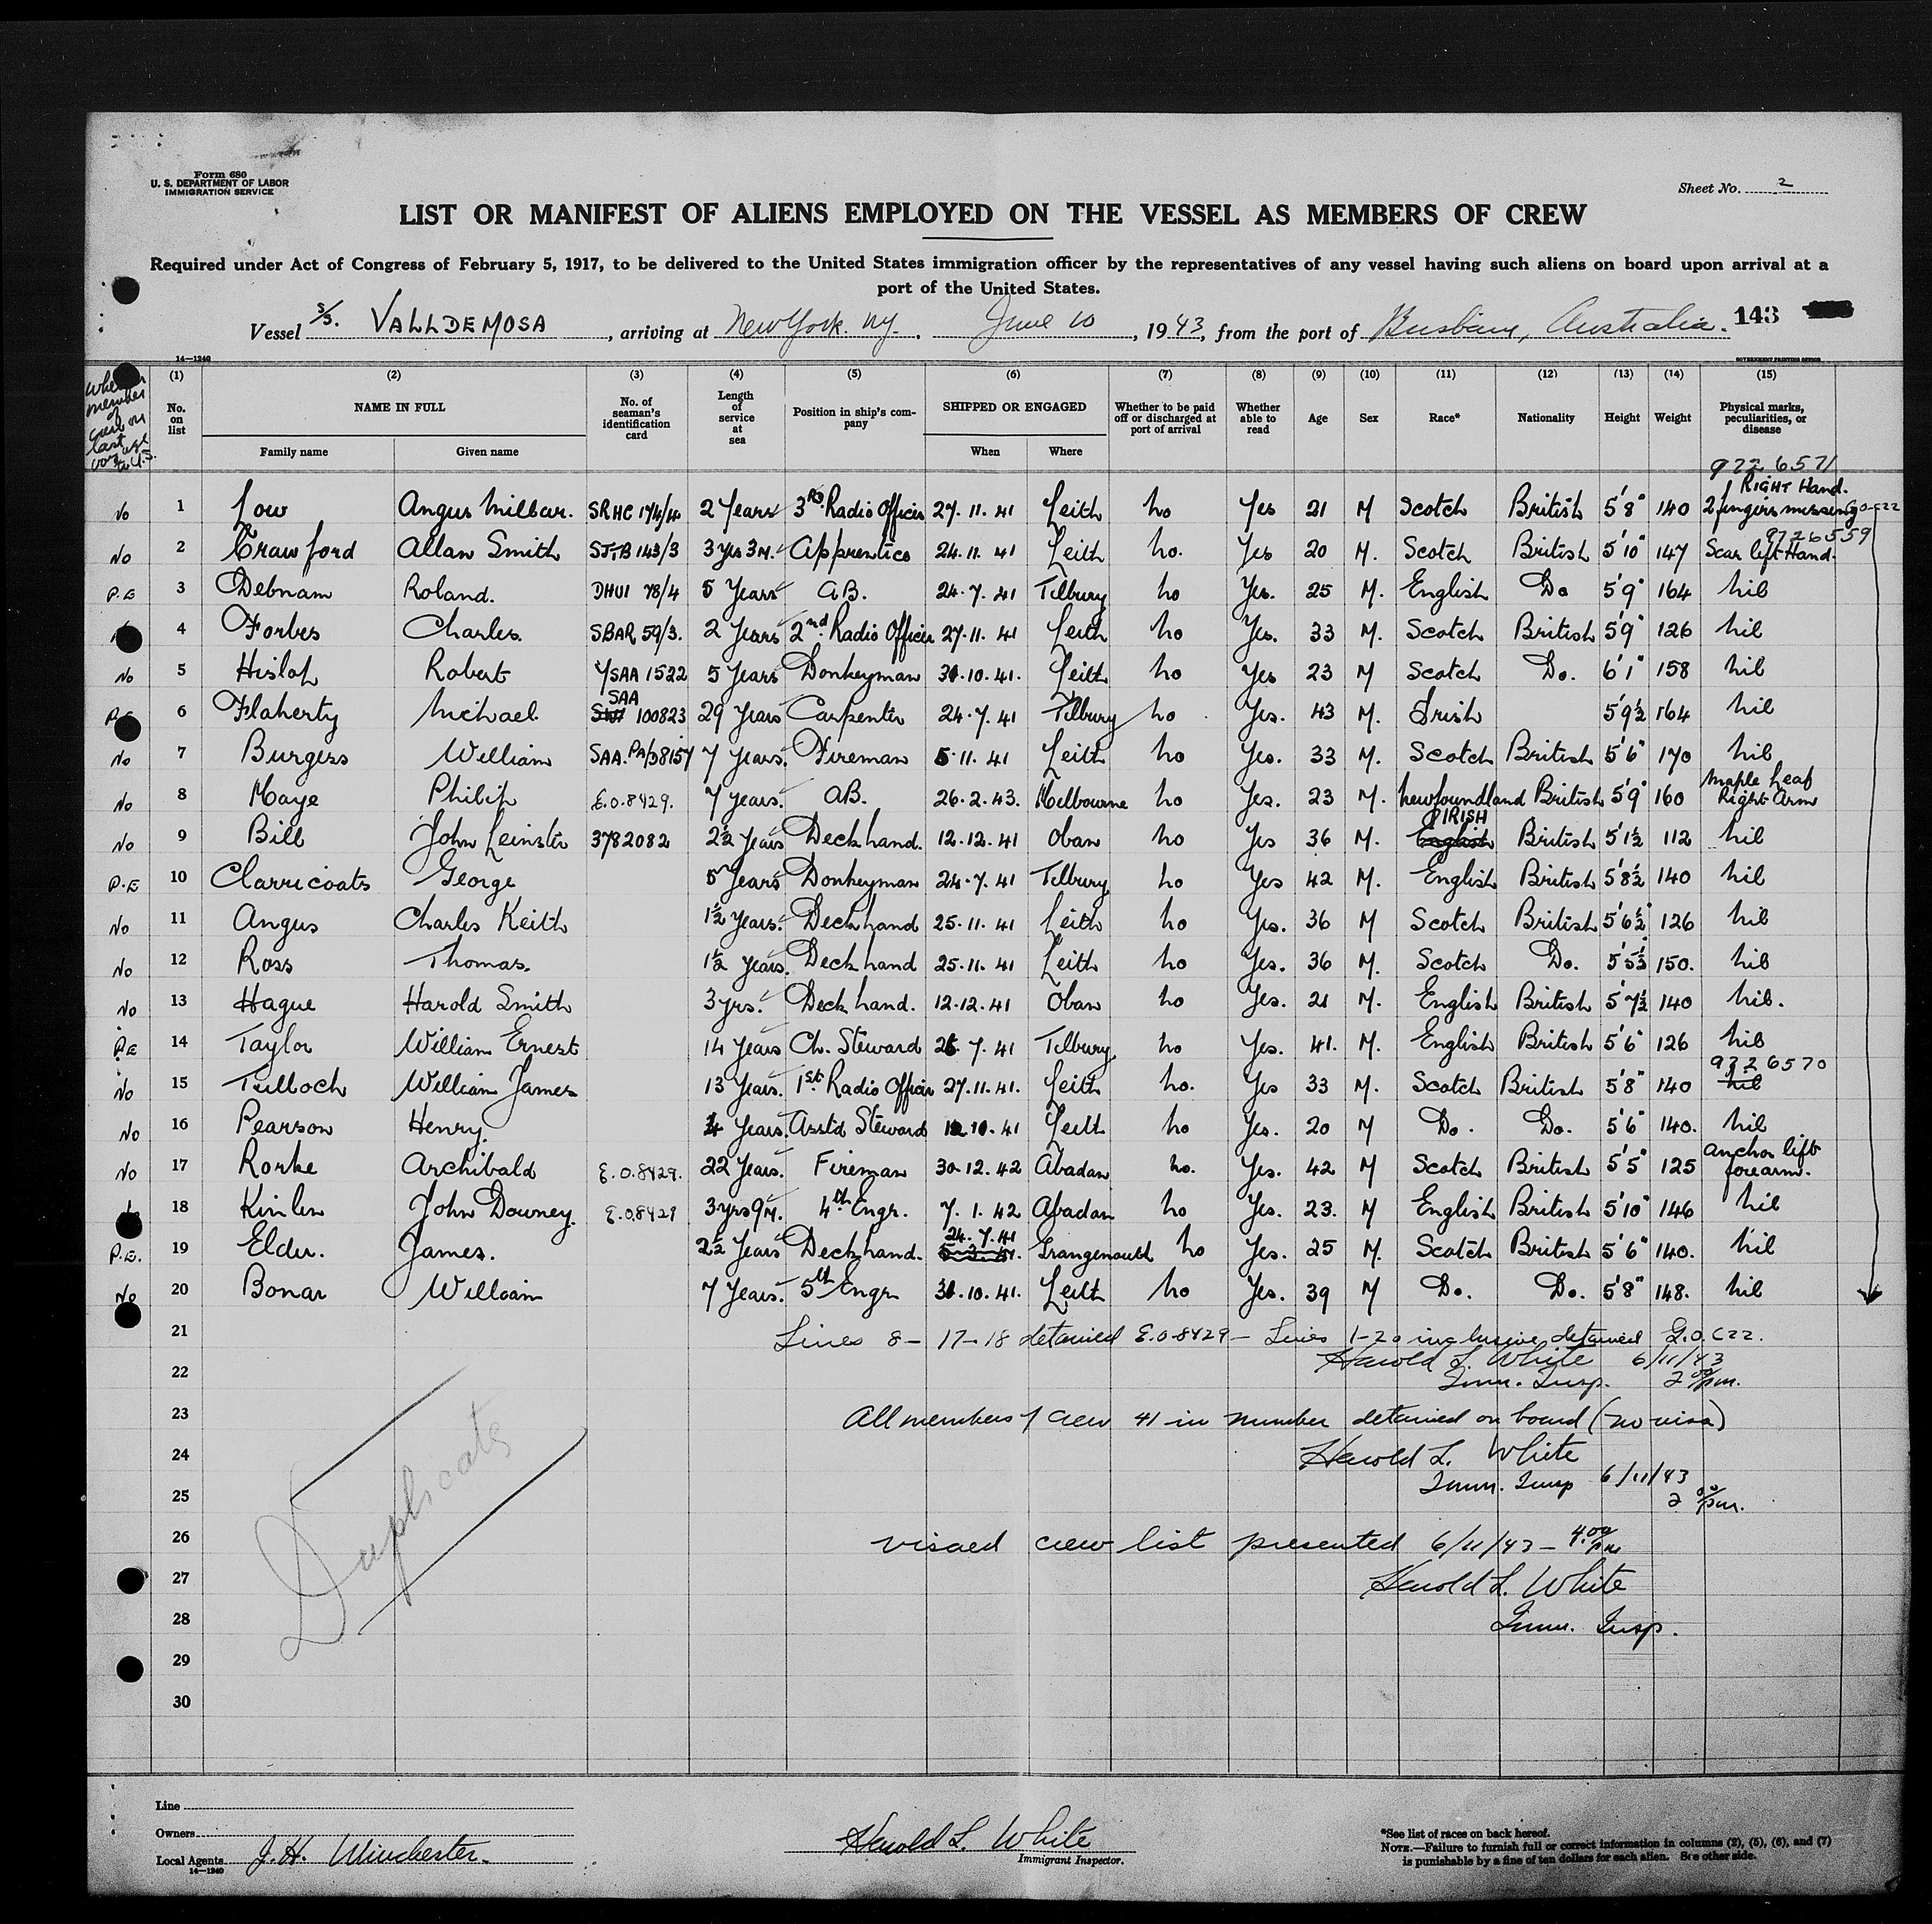 Form 680
U. S. DEPARTMENT OF LABOR
IMMIGRATION SERVICE
Sheet No. 2
LIST OR MANIFEST OF ALIENS EMPLOYED ON THE VESSEL AS MEMBERS OF CREW
Required under Act of Congress of February 5, 1917, to be delivered to the United States immigration officer by the representatives of any vessel having such aliens on board upon arrival at a
port of the United States.
Vessel S/S. VALLDEMOSA, arriving at New York. NY., June 10, 1943, from the port of Brisbane, Australia. 143
14—1240 GOVERNMENT PRINTING OFFICE
Whether member of crew on last voyage to U.S.
(1) (2) (3) (4) (5) (6) (7) (8) (9) (10) (11) (12) (13) (14) (15)
No. on list
NAME IN FULL
Family name Given name
No. of seaman's identification card
Length of service at sea
Position in ship's company
SHIPPED OR ENGAGED
When Where
Whether to be paid off or discharged at port of arrival
Whether able to read
Age Sex Race* Nationality Height Weight
Physical marks, peculiarities, or disease
972 6571
Right Hand.
No 1 Low Angus Millar. SRHC 174/4 2 Years 3rd Radio Officer 27.11.41 Leith No Yes 21 M Scotch British 5'8" 140 2 fingers missing
9726559
No 2 Crawford Allan Smith STTB 143/3 3 yrs 3M. Apprentice 24.11.41 Leith No. Yes 20 M. Scotch British 5'10" 147 Scar left Hand.
P.E 3 Debnam Roland. DHUI 78/4 5 Years AB. 24.7.41 Tilbury No Yes. 25 M. English Do 5'9" 164 Nil
4 Forbes Charles SBAR 59/3. 2 Years 2nd Radio Officer 27.11.41 Leith No Yes. 33 M. Scotch British 5'9" 126 Nil
No 5 Hislop Robert YSAA 1522 5 Years Donkeyman 31.10.41. Leith No Yes 23 M Scotch Do. 6'1" 158 Nil
6 Flaherty Michael SAA 100823 29 Years Carpenter 24.7.41 Tilbury No Yes. 43 M. Irish 5'9½ 164 Nil
No 7 Burgess William SAA.PA/38157 7 Years. Fireman 5.11.41 Leith No Yes. 33 M. Scotch British 5'6" 170 Nil
No 8 Maye Philip E.O.8429. 7 years. AB. 26.2.43. Melbourne No Yes. 23 M. Newfoundland British 5'9" 160 Maple Leaf Right Arm
No 9 Bill John Leinster 3782082 2½ Years Deck hand. 12.12.41 Oban No Yes 36 M. English IRISH British 5'1½ 112 Nil
P.E 10 Clarricoats George 5 Years Donkeyman 24.7.41 Tilbury No Yes 42 M. English British 5'8½ 140 Nil
No 11 Angus Charles Keith 1½ Years. Deck hand 25.11.41 Leith No Yes. 36 M Scotch British 5'6½" 126 Nil
No 12 Ross Thomas. 1½ Years. Deck hand 25.11.41 Leith No Yes. 36 M. Scotch Do. 5'5½ 150. Nil
No 13 Hague Harold Smith 3 yrs. Deck hand. 12.12.41 Oban No Yes. 21 M. English British 5'7½ 140 Nil.
P.E 14 Taylor William Ernest 14 Years Ch. Steward 7.41 Tilbury No Yes. 41. M. English British 5'6" 126 Nil
9726570
No 15 Tulloch William James 13 Years. 1st Radio Officer 27.11.41. Leith No. Yes 33 M. Scotch British 5'8" 140 Nil
No 16 Pearson Henry. 4 Years. Asstd Steward 10.41 Leith No Yes. 20 M Do. Do. 5'6" 140. Nil
No 17 Rorke Archibald E.O.8429. 22 Years. Fireman 30.12.42 Abadan No. Yes. 42 M Scotch British 5'5" 125 Anchor left forearm.
18 Kinlen John Downey. E.O.8429 3 yrs 9M. 4th Engr. 7.1.42 Abadan No Yes. 23. M English British 5'10" 146 Nil
P.E. 19 Elder. James. 2½ Years Deck hand. 24.7.41 Grangemouth No Yes. 25 M. Scotch British 5'6" 140. Nil
No 20 Bonar William 7 Years. 5th Engr 31.10.41. Leith No Yes. 39 M Do. Do. 5'8" 148. Nil
21 Lines 8 - 17 - 18 detained E.O.8429 - Lines 1-20 inclusive detained G.O.C22.
Harold L. White 6/11/43
22 Imm. Insp. 2 00 pm.
23 All members of crew 41 in number detained on board (no visa)
24 Harold L. White
Imm. Insp 6/11/43
25 2 00 pm.
26 visaed crew list presented 6/11/43 - 4.00 pm
27 Harold L. White
28 Imm. Insp.
29
30
Duplicate
Line
Owners
Local Agents J. H. Winchester.
14—1240
Harold L. White
Immigrant Inspector.
*See list of races on back hereof.
NOTE.—Failure to furnish full or correct information in columns (2), (5), (6), and (7)
is punishable by a fine of ten dollars for each alien. See other side.